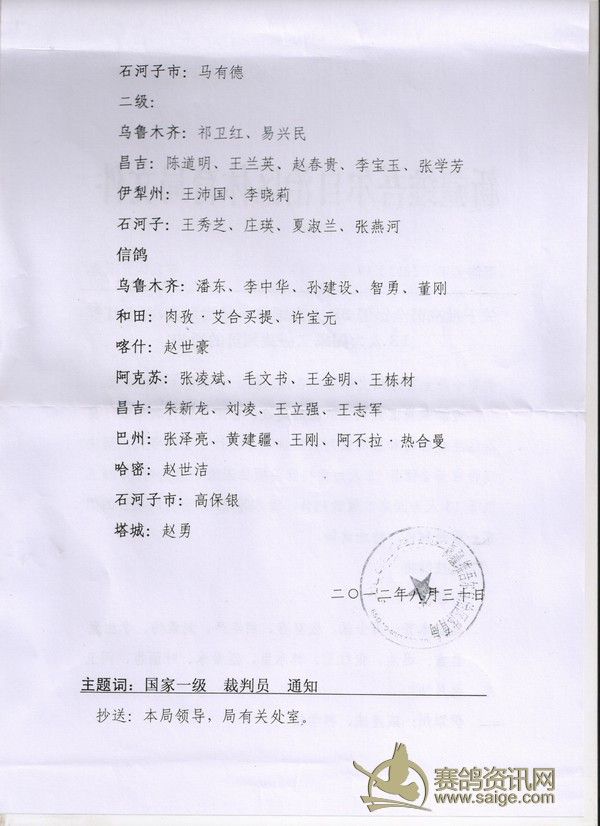 石河子市：马有德
二级：
乌鲁木齐：祁卫红、易兴民
昌吉：陈道明、王兰英、赵春贵、李宝玉、张学芳
伊犁州：王沛国、李晓莉
石河子：王秀芝、庄瑛、夏淑兰、张燕河
信鸽
乌鲁木齐：潘东、李中华、孙建设、智勇、董刚
和田：肉孜·艾合买提、许宝元
喀什：赵世豪
阿克苏：张凌斌、毛文书、王金明、王栋材
昌吉：朱新龙、刘凌、王立强、王志军
巴州：张泽亮、黄建疆、王刚、阿不拉·热合曼
哈密：赵世洁
石河子市：高保银
塔城：赵勇
二〇一二年八月三十日
主题词：国家一级 裁判员 通知
抄送：本局领导，局有关处室。
赛鸽资讯网
www.saige.com